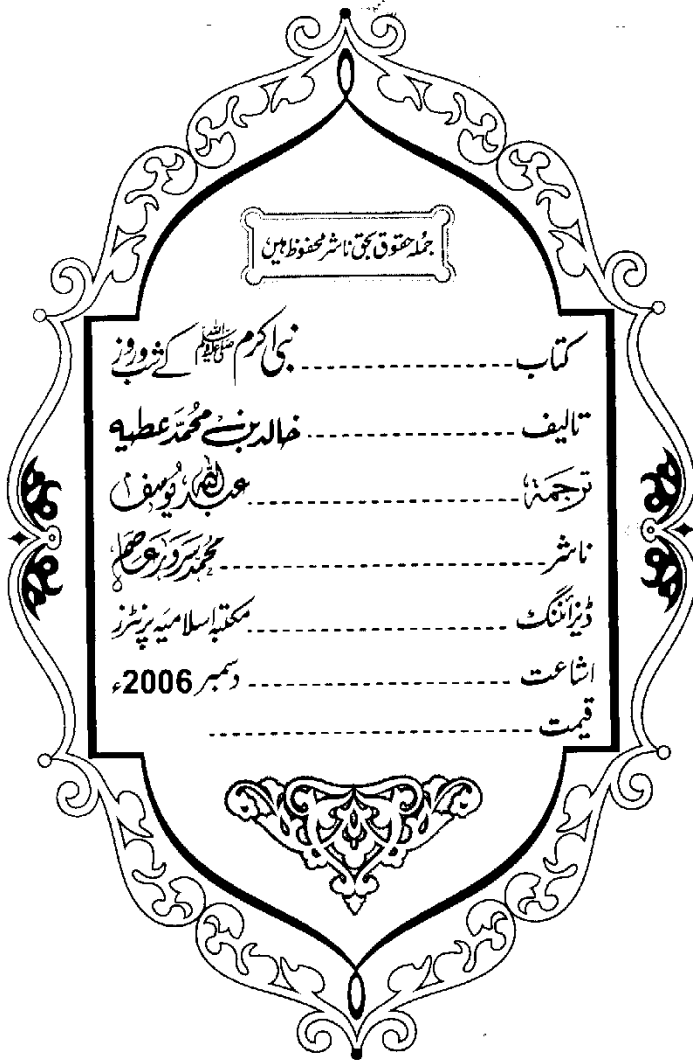 جملہ حقوق بحق ناشر محفوظ ہیں
کتاب ------------------ نبی اکرم ﷺ کے شب و روز
تالیف ------------------ خالد بن محمد عطیہ
ترجمة ------------------ عبداللہ یوسف
ناشر ------------------ محمد سرور عاصم
ڈیزائننگ ------------------ مکتبہ اسلامیہ پرنٹرز
اشاعت ------------------ دسمبر 2006ء
قیمت ------------------